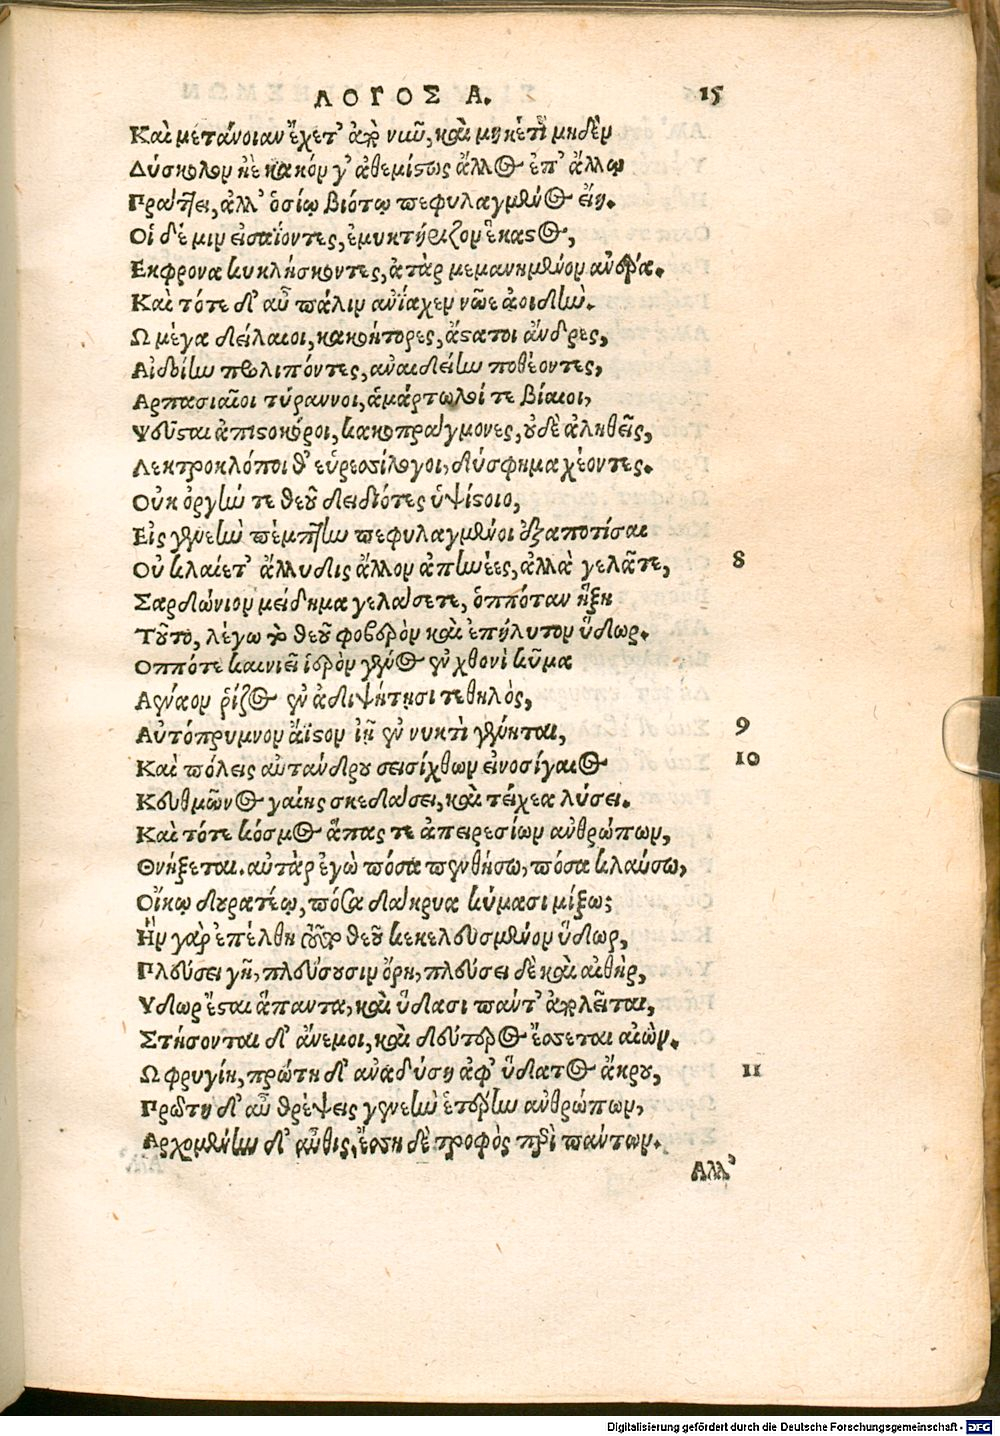 ΛΟΓΟΣ Α. 15
Καὶ μετάνοιαν ἔχετ' ἀπὸ νιῦ, καὶ μηκέτι μηδὲν
Δύσκολον ἠὲ κακόν γ' ἀθεμίστως ἄλλος ἐπ' ἄλλῳ
Πράττει, ἀλλ' ὁσίῳ βιότῳ πεφυλαγμένος εἴη.
Οἱ δέ μιν εἰσαΐοντες, ἐμυκτήριζον ἕκαστος,
Εκφρονα κυκλήσκοντες, ἀτὰρ μεμανημένον ἄνδρα.
Καὶ τότε δ' αὖ πάλιν ἀνΐαχεν νῶε ἀοιδήν.
Ω μέγα δείλαιοι, κακοήτορες, ἄστατοι ἄνδρες,
Αἰδοίην προλιπόντες, ἀναιδείην ποθέοντες,
Αρπασιαῖοι τύραννοι, ἁμάρτωλοί τε βίαιοι,
Ψεῦσται ἀπιστοκόροι, κακοπράγμονες, οὐδὲ ἀληθεῖς,
Λεκτροκλόποι θ' εὑρεσίλογοι, δύσφημα χέοντες.
Οὐκ ὀργήν τε θεοῦ δειδιότες ὑψίστοιο,
Εἰς γενεὴν πέμπτην πεφυλαγμένοι ἐξαποτίσαι
Οὐ κλαίετ' ἄλλυδις ἄλλον ἀπηνέες, ἀλλὰ γελᾶτε, 8
Σαρδώνιον μείδημα γελάσετε, ὁππόταν ἥξῃ
Τοῦτο, λέγω τὸ θεοῦ φοβερὸν καὶ ἐπήλυτον ὕδωρ.
Οππότε καινιεῖ ἱερὸν γένος ἐν χθονὶ κῦμα
Αέναον ῥίζος ἐν ἀδιψήτησι τεθηλὸς,
Αὐτόπρυμνον ἄϊστον ἰῇ ἐν νυκτὶ γένηται, 9
Καὶ πόλεις αὐτάνδρου σεισίχθων εἰνοσίγαιος 10
Κευθμῶνος γαίης σκεδάσει, καὶ τείχεα λύσει.
Καὶ τότε κόσμος ἅπας τε ἀπειρεσίων ἀνθρώπων,
Θνήξεται. αὐτὰρ ἐγὼ πόσα πενθήσω, πόσα κλαύσω,
Οἴκῳ δουρατέῳ, πόσα δάκρυα κύμασι μίξω;
Ἢν γὰρ ἐπέλθῃ τοῦτο θεοῦ κεκελευσμένον ὕδωρ,
Πλεύσει γῆ, πλεύσουσιν ὄρη, πλεύσει δὲ καὶ αἰθὴρ,
Υδωρ ἔσται ἅπαντα, καὶ ὕδασι πάντ' ἀπολεῖται,
Στήσονται δ' ἄνεμοι, καὶ δεύτερος ἔσσεται αἰών.
Ω φρυγίη, πρώτη δ' ἀναδύσῃ ἀφ' ὕδατος ἄκρου, 11
Πρώτη δ' αὖ θρέψεις γενεὴν ἑτέρην ἀνθρώπων,
Αρχομένην δ' αὖθις, ἔσσῃ δὲ τροφὸς περὶ πάντων.
Αλλ'
Digitalisierung gefördert durch die Deutsche Forschungsgemeinschaft - DFG